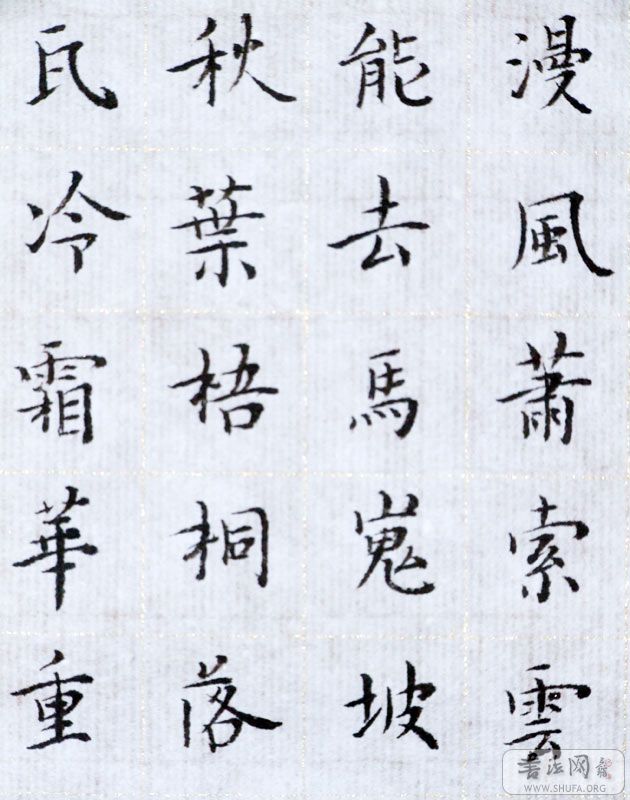 漫風蕭索雲
能去馬嵬坡
秋葉梧桐落
瓦冷霜華重
書法网
WWW.SHUFA.ORG